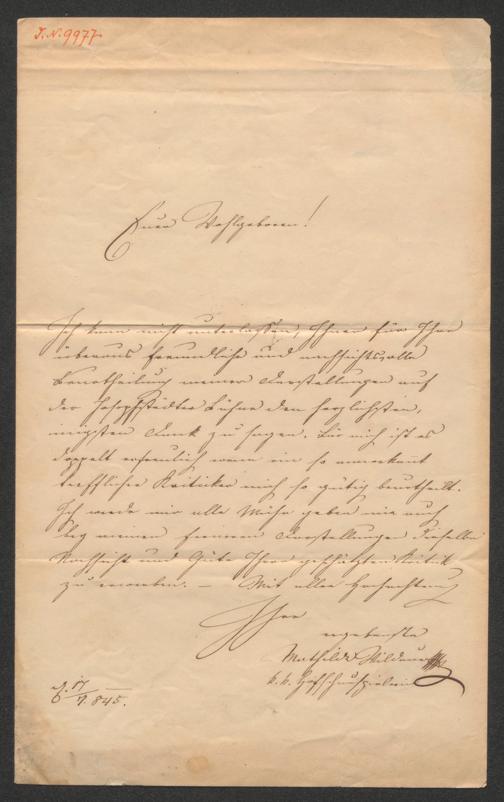 I.N. 9977
Euer Wohlgeboren!
Ich kann nicht unterlassen, Ihnen für Ihre
überaus freundliche und nachsichtsvolle
Beurtheilung meiner Darstellungen auf
der Josephstädter Bühne den herzlichsten,
innigsten Dank zu sagen. Für mich ist es
doppelt erfreulich wenn ein so anerkannt
trefflicher Kritiker mich so gütig beurtheilt.
Ich werde mir alle Mühe geben mir auch
bey meinen ferneren Darstellungen dieselbe
Nachsicht und Güte Ihrer geschätzten Kritik
zu erwerben. — Mit aller Hochachtung
Ihre
ergebenste
Mathilde Wildauer
k. k. Hofschauspielerin
17/7. 845.